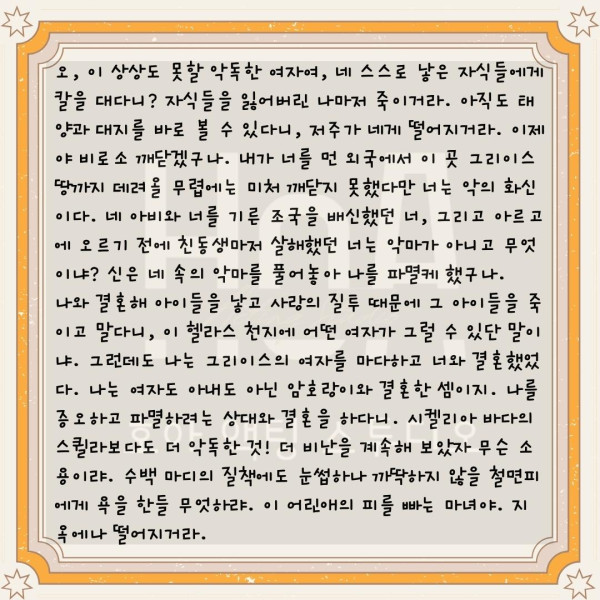 오, 이 상상도 못할 악독한 여자여, 네 스스로 낳은 자식들에게
칼을 대다니? 자식들을 잃어버린 나마저 죽이거라. 아직도 태
양과 대지를 바로 볼 수 있다니, 저주가 네게 떨어지거라. 이제
야 비로소 깨닫겠구나. 내가 너를 먼 외국에서 이 곳 그리이스
땅까지 데려올 무렵에는 미처 깨닫지 못했다만 너는 악의 화신
이다. 네 아비와 너를 기른 조국을 배신했던 너, 그리고 아르고
에 오르기 전에 친동생마저 살해했던 너는 악마가 아니고 무엇
이냐? 신은 네 속의 악마를 풀어놓아 나를 파멸케 했구나.
나와 결혼해 아이들을 낳고 사랑의 질투 때문에 그 아이들을 죽
이고 말다니, 이 헬라스 천지에 어떤 여자가 그럴 수 있단 말이
냐. 그런데도 나는 그리이스의 여자를 마다하고 너와 결혼했었
다. 나는 여자도 아내도 아닌 암호랑이와 결혼한 셈이지. 나를
증오하고 파멸하려는 상대와 결혼을 하다니. 시켈리아 바다의
스퀼라보다도 더 악독한 것! 더 비난을 계속해 보았자 무슨 소
용이랴. 수백 마디의 질책에도 눈썹하나 까딱하지 않을 철면피
에게 욕을 한들 무엇하랴. 이 어린애의 피를 빠는 마녀야. 지
옥에나 떨어지거라.
HoA
호아 액팅 스튜디오